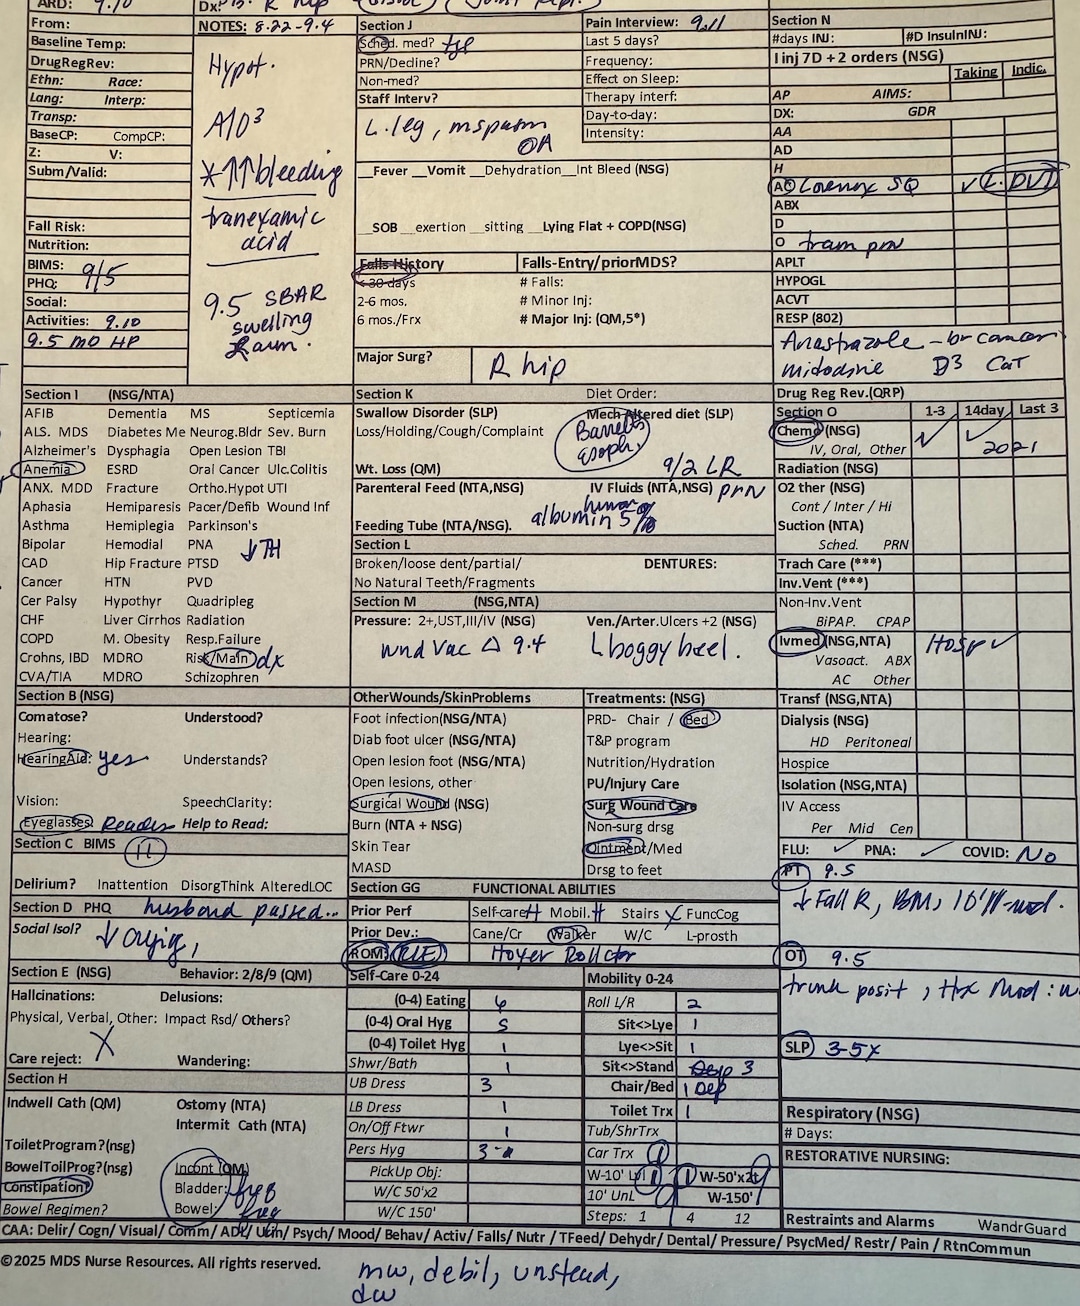 ARD: 9.10
Dx: R hip
NOTES: 8.22-9.4
Baseline Temp:
DrugRegRev:
Ethn: Race:
Lang: Interp:
Transp:
BaseCP: CompCP:
Z: V:
Subm/Valid:
Fall Risk:
Nutrition:
BIMS: 9/5
PHQ:
Social:
Activities: 9.10
9.5 MD HP
Hypot.
A1O³
*↑↑bleeding
tranexamic
acid
9.5 SBAR
swelling
Section J
Sched. med? tyl
PRN/Decline?
Non-med?
Staff Interv?
L. leg, mspasm
OA
Pain Interview: 9.11
Last 5 days?
Frequency:
Effect on Sleep:
Therapy interf:
Day-to-day:
Intensity:
__Fever __Vomit __Dehydration__Int Bleed (NSG)
__SOB __exertion __sitting __Lying Flat + COPD(NSG)
Falls-History
< 30 days
2-6 mos.
6 mos./Frx
Falls-Entry/priorMDS?
# Falls:
# Minor Inj:
# Major Inj: (QM,5*)
Major Surg? R hip
Section N
#days INJ: #D InsulnINJ:
I inj 7D +2 orders (NSG)
Taking Indic.
AP AIMS:
DX: GDR
AA
AD
H
AC Lovenox SQ ✓ L. DVT
ABX
D
O tram prn
APLT
HYPOGL
ACVT
RESP (802)
Anastrazole - br cancer
mitodrine D3 CaT
Section I (NSG/NTA)
AFIB Dementia MS Septicemia
ALS. MDS Diabetes Me Neurog.Bldr Sev. Burn
Alzheimer's Dysphagia Open Lesion TBI
Anemia ESRD Oral Cancer Ulc.Colitis
ANX. MDD Fracture Ortho.Hypot UTI
Aphasia Hemiparesis Pacer/Defib Wound Inf
Asthma Hemiplegia Parkinson's
Bipolar Hemodial PNA ↓TH
CAD Hip Fracture PTSD
Cancer HTN PVD
Cer Palsy Hypothyr Quadripleg
CHF Liver Cirrhos Radiation
COPD M. Obesity Resp.Failure
Crohns, IBD MDRO Risk/Main dx
CVA/TIA MDRO Schizophren
Section K Diet Order:
Swallow Disorder (SLP) Mech Altered diet (SLP)
Loss/Holding/Cough/Complaint Barretts
esoph,
Wt. Loss (QM) 9/2 LR
Parenteral Feed (NTA,NSG) IV Fluids (NTA,NSG) prn
human
Feeding Tube (NTA/NSG). albumin 5%
Section L
Broken/loose dent/partial/ DENTURES:
No Natural Teeth/Fragments
Section M (NSG,NTA)
Pressure: 2+,UST,III/IV (NSG) Ven./Arter.Ulcers +2 (NSG)
wnd vac Δ 9.4 L boggy heel.
Drug Reg Rev.(QRP)
Section O 1-3 14day Last 3
Chemo (NSG) ✓ ✓
IV, Oral, Other 2021
Radiation (NSG)
O2 ther (NSG)
Cont / Inter / Hi
Suction (NTA)
Sched. PRN
Trach Care (***)
Inv.Vent (***)
Non-Inv.Vent
BiPAP. CPAP
Ivmed (NSG,NTA) Hosp ✓
Vasoact. ABX
AC Other
Transf (NSG,NTA)
Dialysis (NSG)
HD Peritoneal
Hospice
Isolation (NSG,NTA)
IV Access
Per Mid Cen
FLU: ✓ PNA: ✓ COVID: No
PT 9.5
↓Fall R, BM, 10'
OT 9.5
trunk posit,
SLP 3-5x
Respiratory (NSG)
# Days:
RESTORATIVE NURSING:
Restraints and Alarms WandrGuard
Section B (NSG)
Comatose? Understood?
Hearing:
HearingAid: yes Understands?
Vision: SpeechClarity:
Eyeglasses: Reader Help to Read:
Section C BIMS 11
Delirium? Inattention DisorgThink AlteredLOC
Section D PHQ husband passed...
Social Isol? ↓ crying,
Section E (NSG) Behavior: 2/8/9 (QM)
Hallcinations: Delusions:
Physical, Verbal, Other: Impact Rsd/ Others?
X
Care reject: Wandering:
Section H
Indwell Cath (QM) Ostomy (NTA)
Intermit Cath (NTA)
ToiletProgram?(nsg)
BowelToilProg?(nsg) Incont (QM)
Constipation? Bladder: freq
Bowel Regimen? Bowel: freq
OtherWounds/SkinProblems
Foot infection(NSG/NTA)
Diab foot ulcer (NSG/NTA)
Open lesion foot (NSG/NTA)
Open lesions, other
Surgical Wound (NSG)
Burn (NTA + NSG)
Skin Tear
MASD
Treatments: (NSG)
PRD- Chair / Bed
T&P program
Nutrition/Hydration
PU/Injury Care
Surg Wound Care
Non-surg drsg
Ointment/Med
Drsg to feet
Section GG FUNCTIONAL ABILITIES
Prior Perf Self-care Mobil. Stairs X FuncCog
Prior Dev.: Cane/Cr Walker W/C L-prosth
ROM: RLE Hoyer Rollator
Self-Care 0-24 Mobility 0-24
(0-4) Eating 6
(0-4) Oral Hyg 5
(0-4) Toilet Hyg 1
Shwr/Bath 1
UB Dress 3
LB Dress 1
On/Off Ftwr 1
Pers Hyg 3
PickUp Obj:
W/C 50'x2
W/C 150'
Roll L/R 2
Sit<>Lye 1
Lye<>Sit 1
Sit<>Stand Dep 3
Chair/Bed 1 Dep
Toilet Trx 1
Tub/ShrTrx
Car Trx
W-10' L W-50'x2t
10' UnL W-150'
Steps: 1 4 12
CAA: Delir/ Cogn/ Visual/ Comm/ ADL/ Urin/ Psych/ Mood/ Behav/ Activ/ Falls/ Nutr /TFeed/ Dehydr/ Dental/ Pressure/ PsycMed/ Restr/ Pain / RtnCommun
©2025 MDS Nurse Resources. All rights reserved.
mw, debil, unstead,
dw